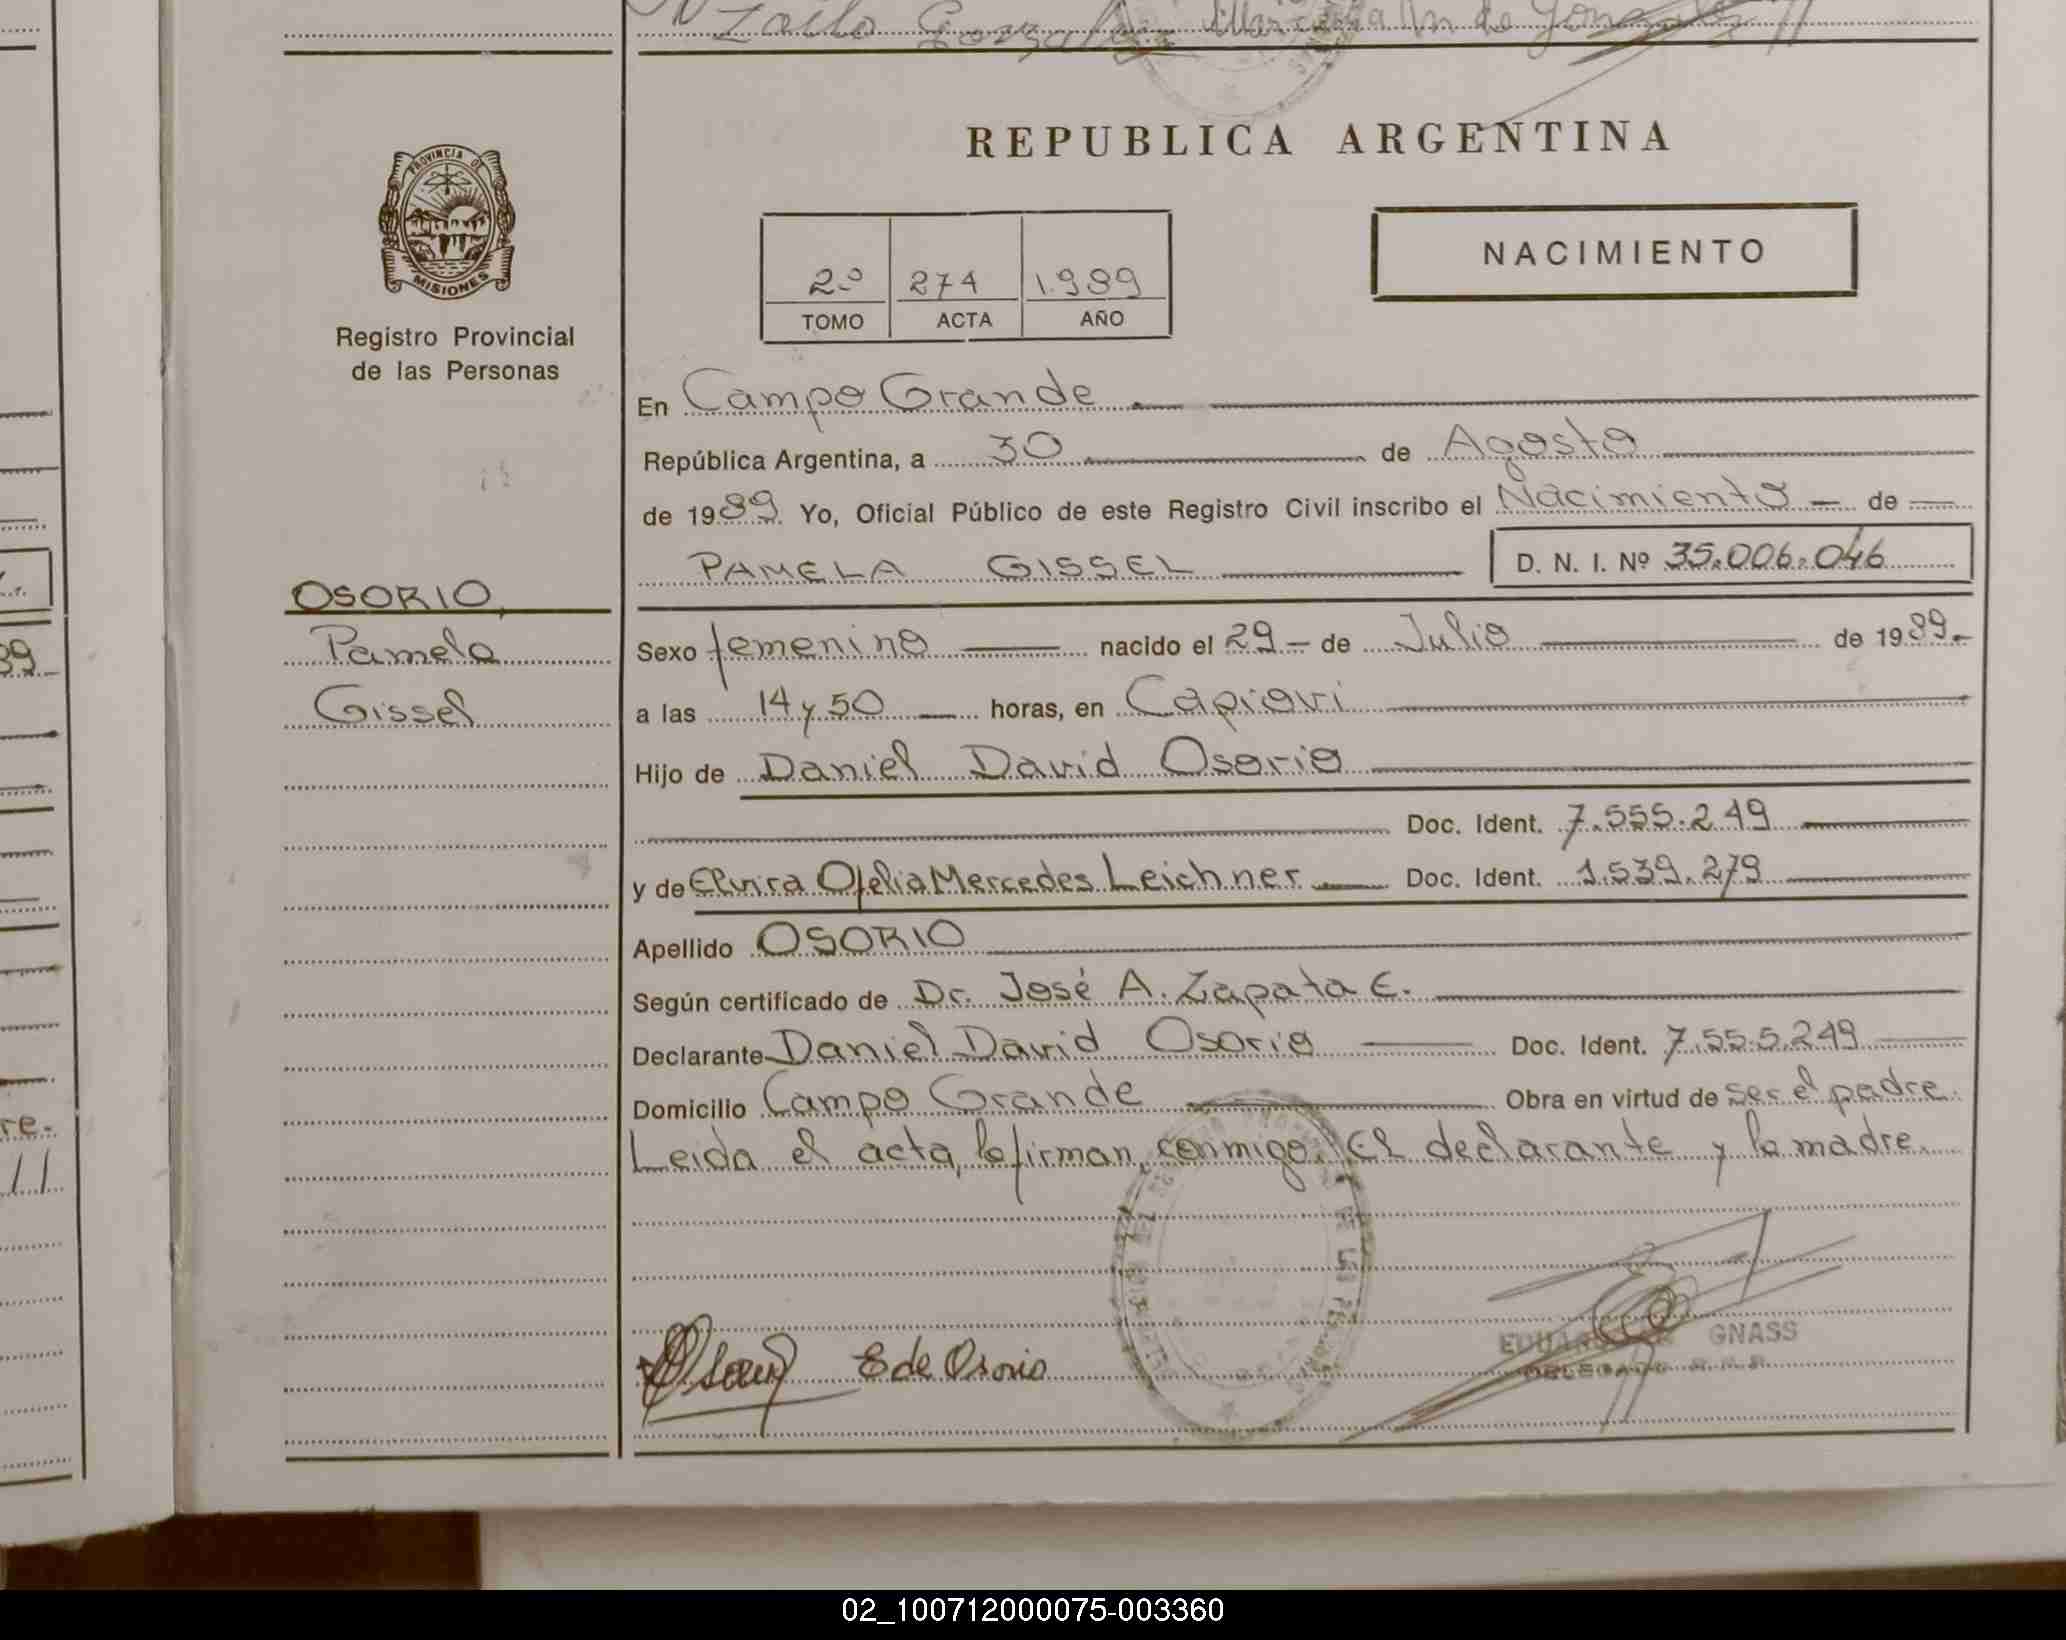 Zoilo Gonzalez Marciana M de Gonzalez
REPUBLICA ARGENTINA
NACIMIENTO
PROVINCIA DE
MISIONES
Registro Provincial
de las Personas
2º 274 1.989
TOMO ACTA AÑO
En Campo Grande
República Argentina, a 30 de Agosto
de 1989 Yo, Oficial Público de este Registro Civil inscribo el Nacimiento de
PAMELA GISSEL D. N. I. Nº 35.006.046
OSORIO,
Pamela
Gissel
Sexo femenino nacido el 29 de Julio de 1989.
a las 14 y 50 horas, en Capiovi
Hijo de Daniel David Osorio
Doc. Ident. 7.555.249
y de Elvira Ofelia Mercedes Leichner Doc. Ident. 1.539.279
Apellido OSORIO
Según certificado de Dr. José A. Zapata C.
Declarante Daniel David Osorio Doc. Ident. 7.555.249
Domicilio Campo Grande Obra en virtud de ser el padre.
Leida el acta, la firman, conmigo. El declarante y la madre.
E de Osorio
GNASS
DELEGADO
89
re.
02_100712000075-003360